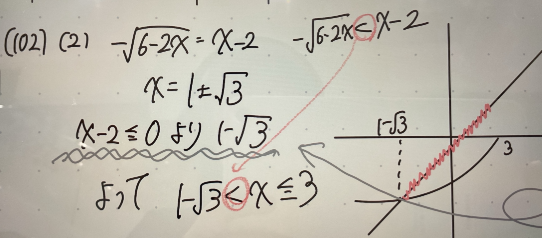 (102) (2) -√6-2x = x-2 -√6-2x < x-2
x = 1±√3
x-2 ≦ 0 より 1-√3
よって 1-√3 < x ≦ 3
1-√3
3